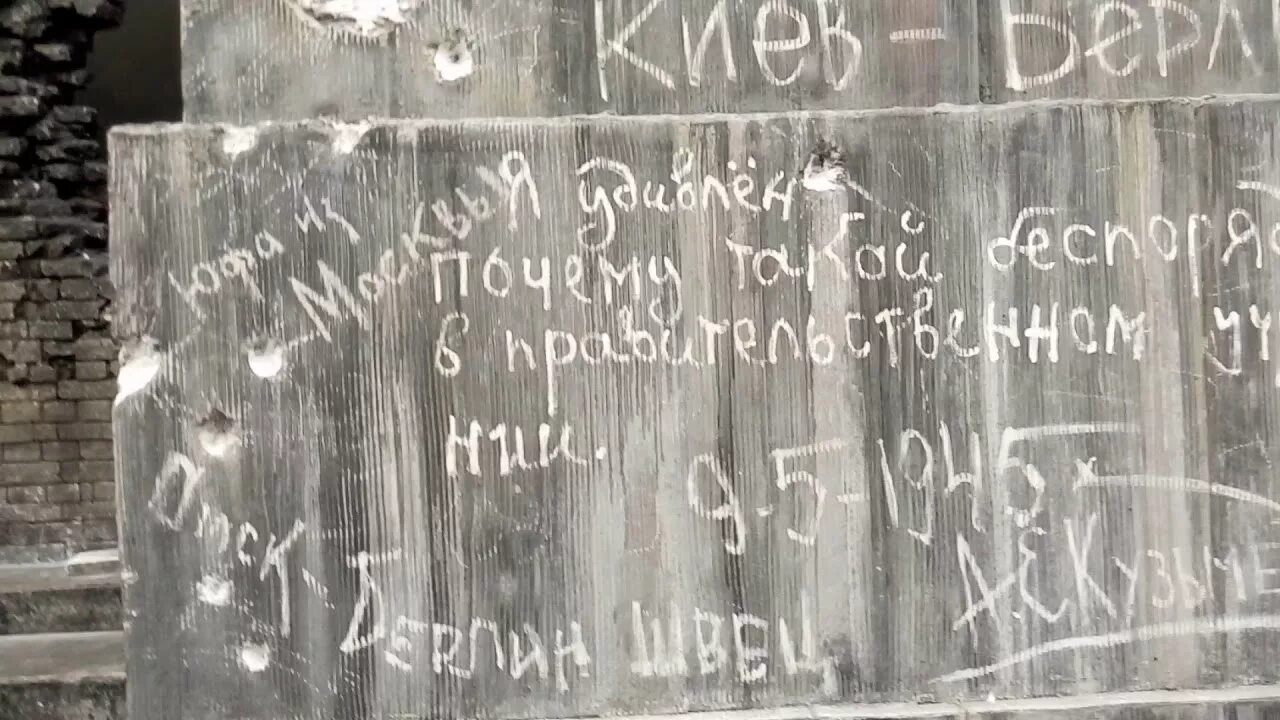 Киев - Берл
Юра из
Москвы
Я удивлён
Почему такой беспоряд
в правительственном уч
нии.
9.5-1945
Омск-Берлин Швец
А.Е Кузьмче